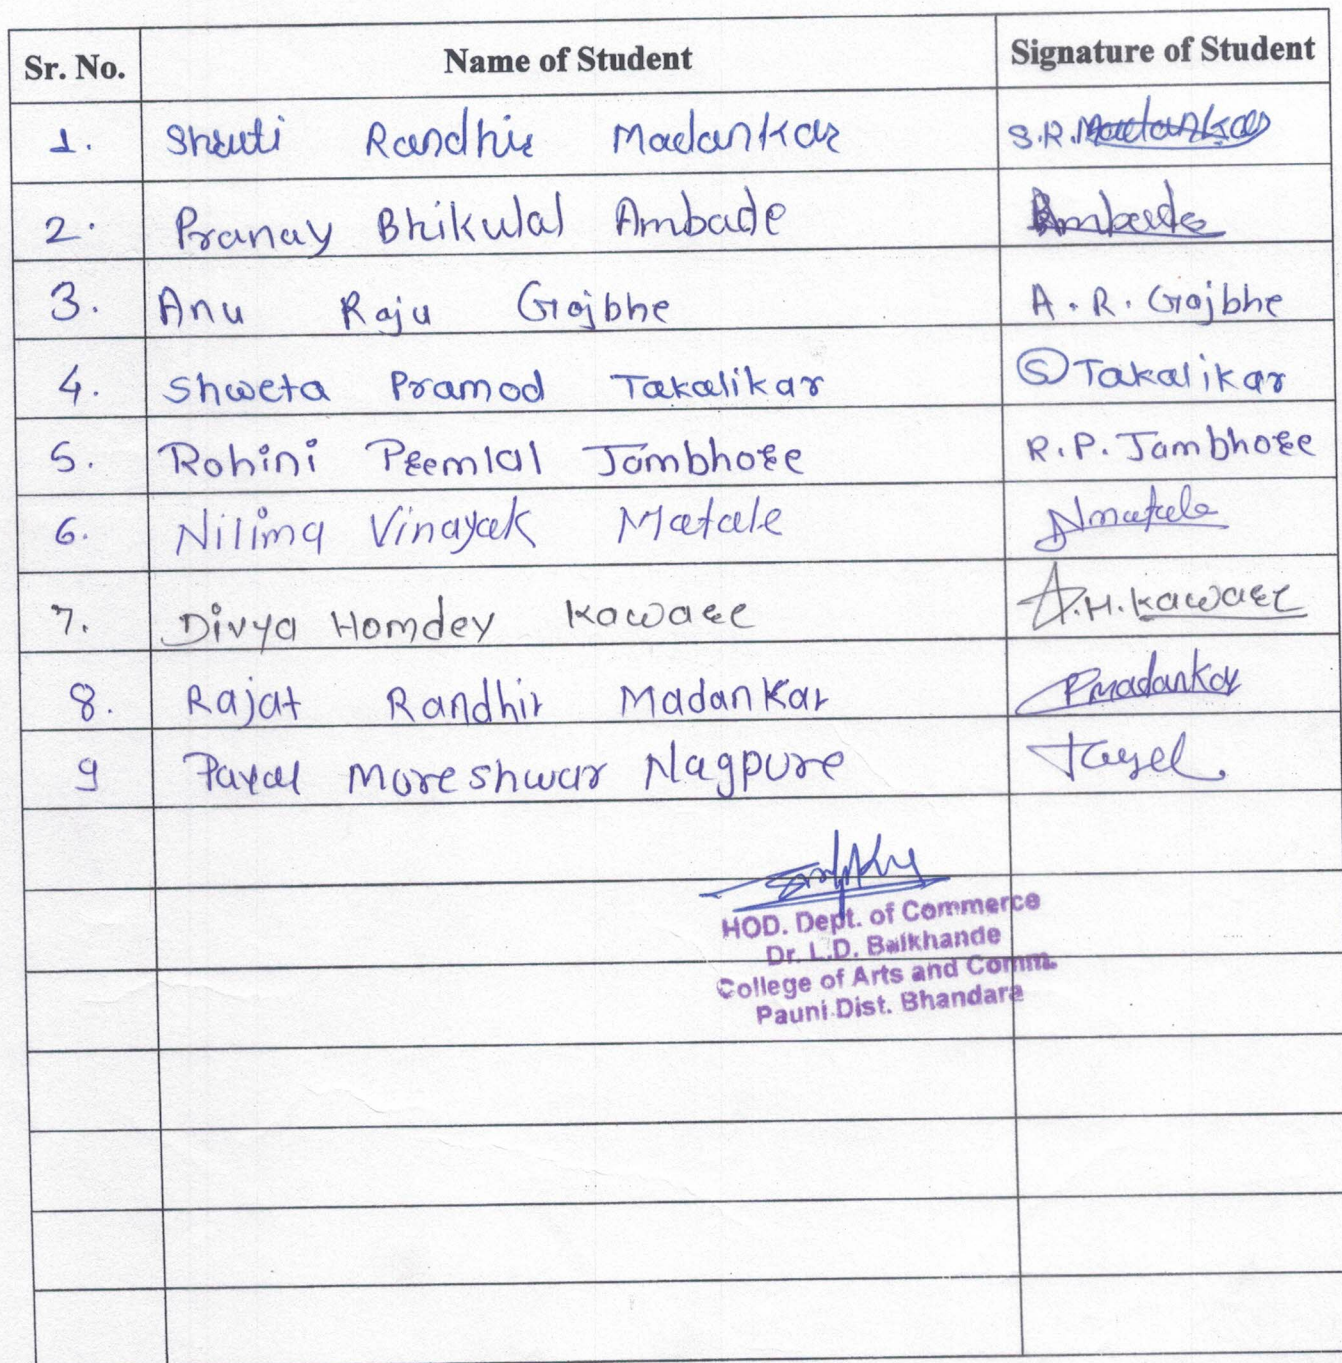 Sr. No. Name of Student Signature of Student
1. Shruti Randhir Madankar S.R. Madankar
2. Pranay Bhikulal Ambade Ambade
3. Anu Raju Gajbhe A. R. Gajbhe
4. Shweta Pramod Takalikar S Takalikar
5. Rohini Premlal Jambhore R.P. Jambhore
6. Nilima Vinayak Matale Nmatale
7. Divya Homdey Kaware D.H. Kaware
8. Rajat Randhir Madankar Rmadankar
9 Payal Moreshwar Nagpure Payal
HOD. Dept. of Commerce
Dr. L.D. Balkhande
College of Arts and Comm.
Pauni Dist. Bhandara